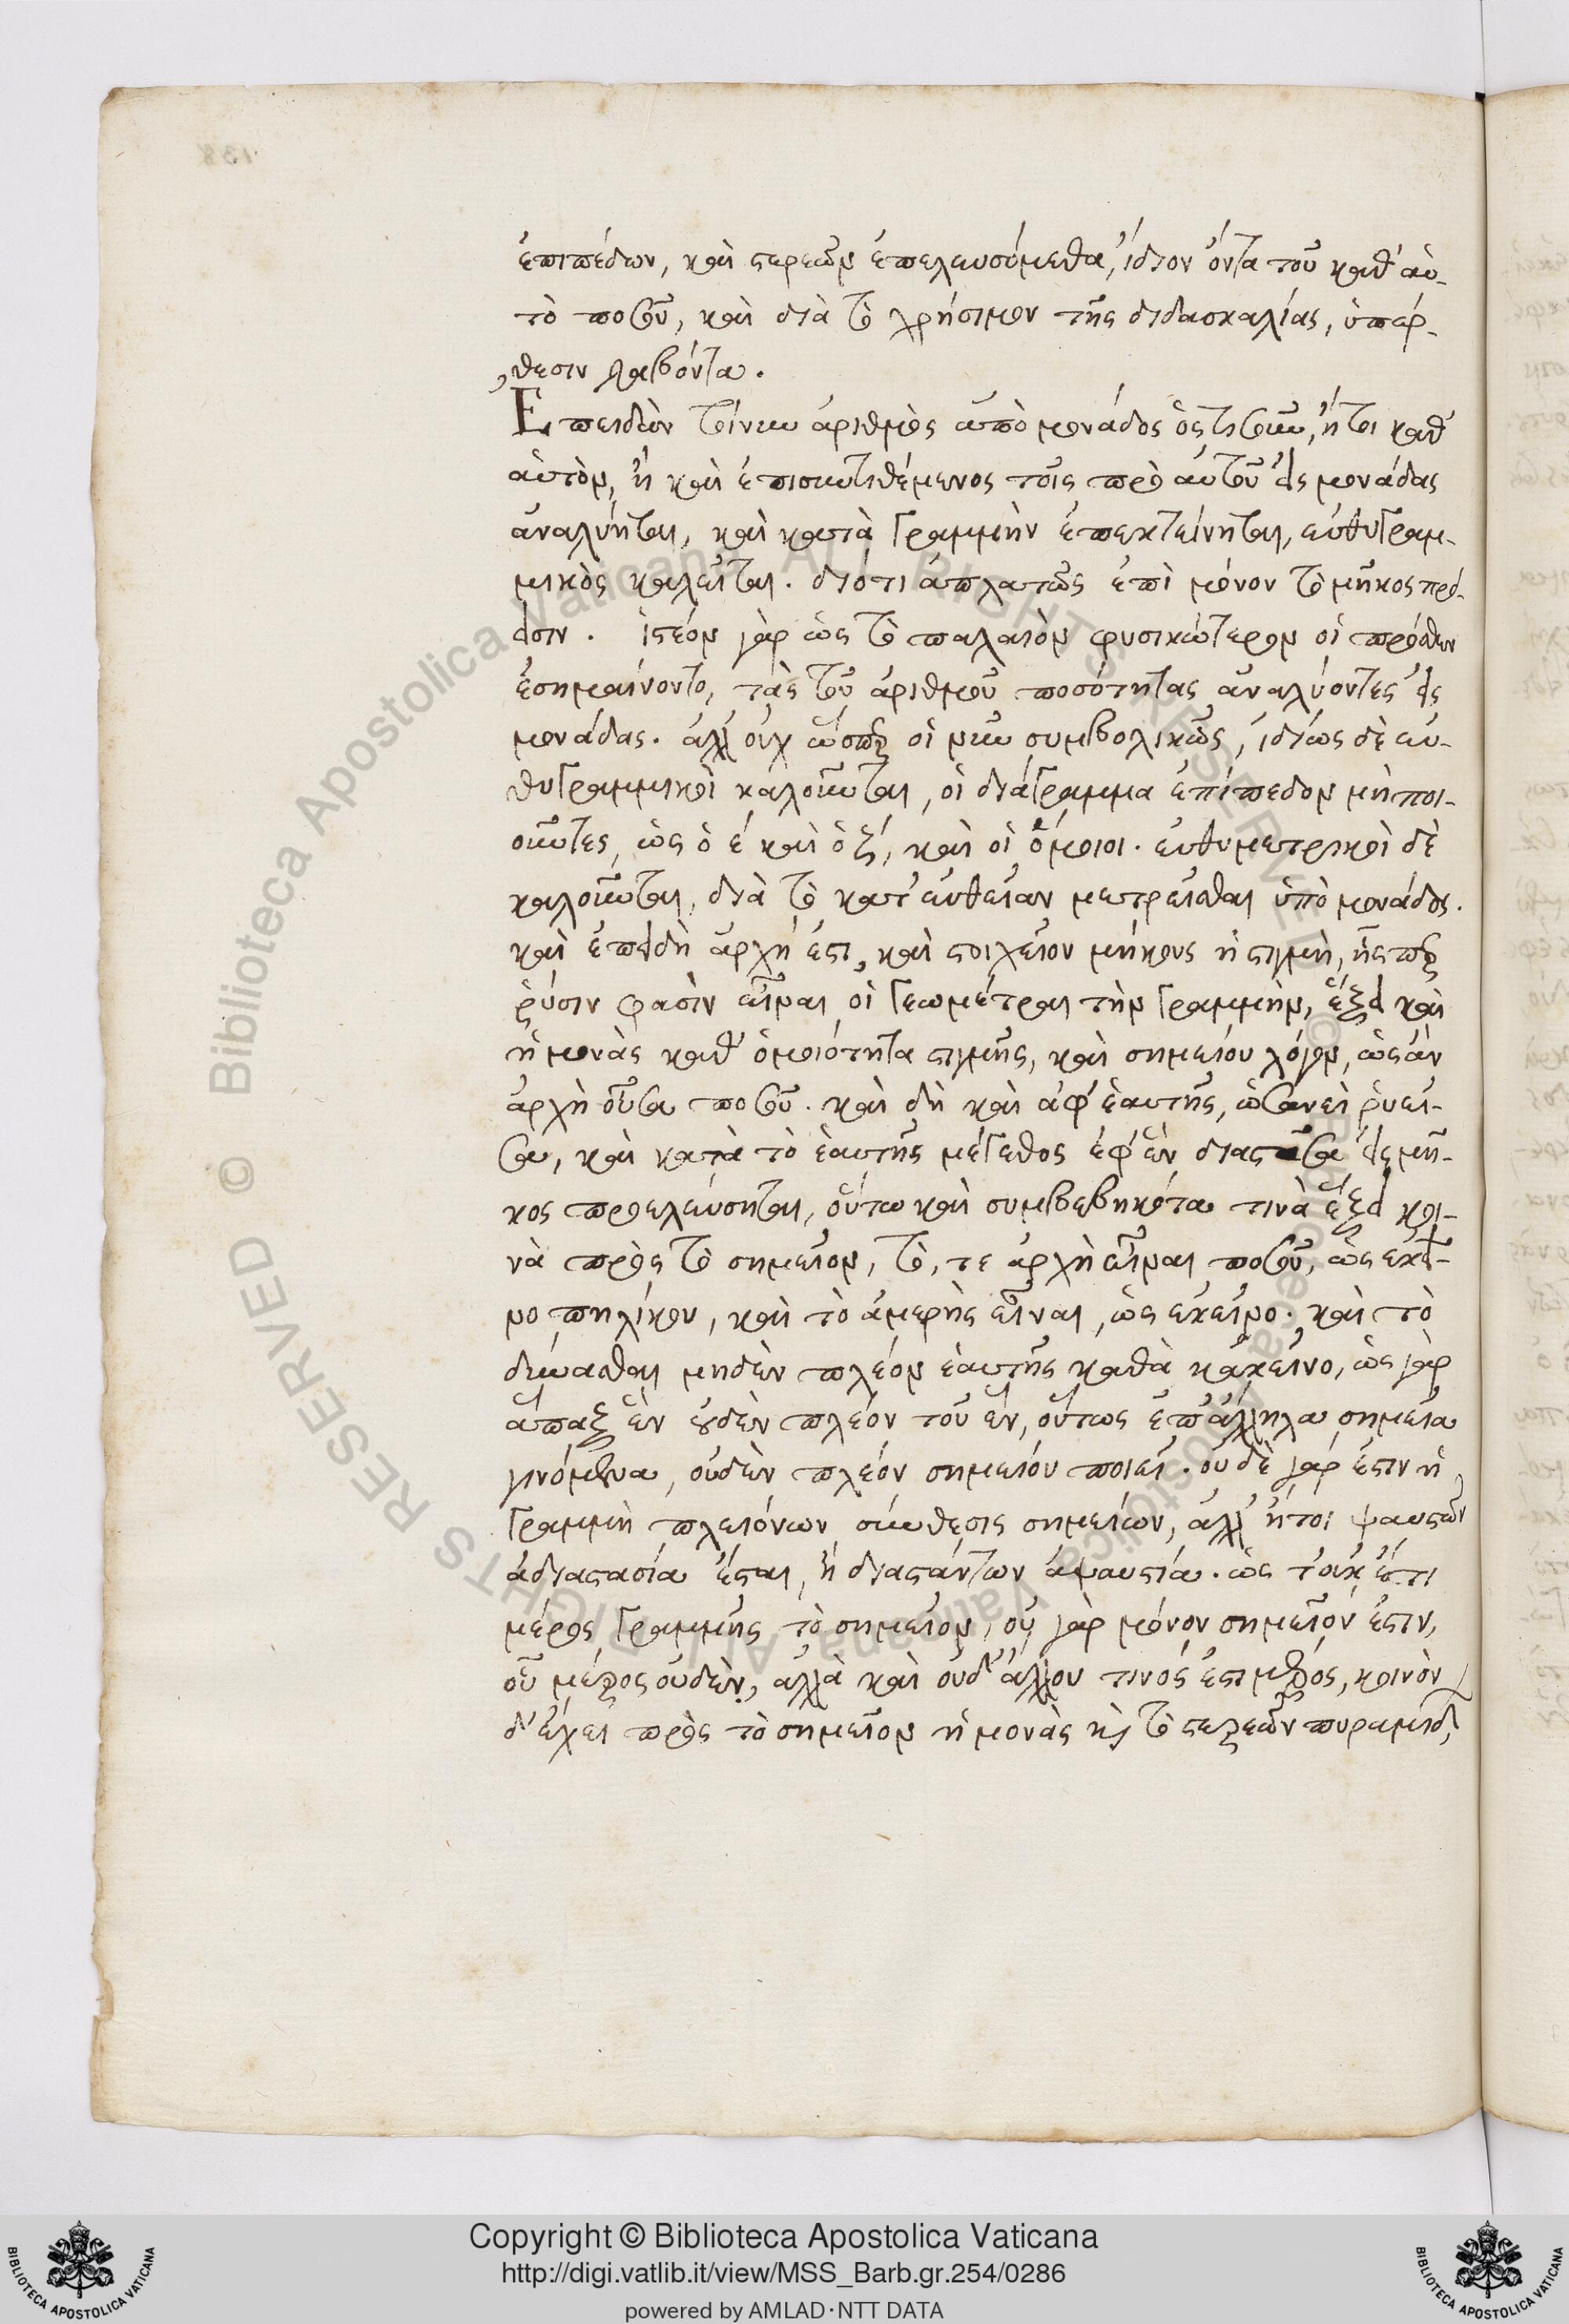 ἐπιπέδων, καὶ στερεῶν ἐπελευσόμεθα, ἴδιον ὄντα τοῦ καθ' αὑ-
τὸ ποσοῦ, καὶ διὰ τὸ χρήσιμον τῆς διδασκαλίας, ὑπέρ-
θεσιν λαβόντα.
Ἐπειδὰν τοίνυν ἀριθμὸς ἀπὸ μονάδος ὁστισοῦν, ἤτοι καθ'
αὑτὸν, ἢ καὶ ἐπισυντιθέμενος τοῖς πρὸ αὐτοῦ εἰς μονάδας
ἀναλύηται, καὶ κατὰ γραμμὴν ἐπεκτείνηται, εὐθυγραμ-
μικὸς καλεῖται. διότι ἀπλατῶς ἐπὶ μόνον τὸ μῆκος πρό-
εισιν. ἰστέον γὰρ ὡς τὸ παλαιὸν φυσικώτερον οἱ πρόσθεν
ἐσημαίνοντο, τὰς τοῦ ἀριθμοῦ ποσότητας ἀναλύοντες εἰς
μονάδας. ἀλλ' οὐχ ὥσπερ οἱ νῦν συμβολικῶς, ἰδίως δὲ εὐ-
θυγραμμικοὶ καλοῦνται, οἱ διάγραμμα ἐπίπεδον μὴ ποι-
οῦντες, ὡς ὁ ε΄ καὶ ὁ ζ΄, καὶ οἱ ὅμοιοι. εὐθυμετρικοὶ δὲ
καλοῦνται, διὰ τὸ κατ' εὐθεῖαν μετρεῖσθαι ὑπὸ μονάδος.
καὶ ἐπειδὴ ἀρχή ἐστι, καὶ στοιχεῖον μήκους ἡ στιγμὴ, ἧς περ
ῥύσιν φασὶν εἶναι οἱ γεωμέτραι τὴν γραμμὴν, ἕξει καὶ
ἡ μονὰς καθ' ὁμοιότητα στιγμῆς, καὶ σημείου λόγον, ὡς ἂν
ἀρχὴ οὖσα ποσοῦ. καὶ δὴ καὶ ἀφ' ἑαυτῆς, ὡσανεὶ ῥυεῖ-
σα, καὶ κατὰ τὸ ἑαυτῆς μέγεθος ἐφ' ἓν διαστᾶσα εἰς μῆ-
κος προελεύσηται, οὕτω καὶ συμβεβηκότα τινὰ ἕξει κοι-
νὰ πρὸς τὸ σημεῖον, τό, τε ἀρχὴ εἶναι ποσοῦ, ὡς ἐκεῖ-
νο πηλίκου, καὶ τὸ ἀμερὴς εἶναι, ὡς ἐκεῖνο. καὶ τὸ
δύνασθαι μηδὲν πλέον ἑαυτῆς καθὰ κἀκεῖνο, ὡς γὰρ
ἅπαξ ἓν οὐδὲν πλέον τοῦ ἓν, οὕτως ἐπάλληλα σημεῖα
γινόμενα, οὐδὲν πλέον σημείου ποιεῖ. οὐδὲ γάρ ἐστιν ἡ
γραμμὴ πλειόνων σύνθεσις σημείων, ἀλλ' ἤτοι ψαυστῶν
ἀδιαστασία ἔσται, ἢ διαστάντων ἀψαυστία. ὡς τ' οὐκ ἔστι
μέρος γραμμῆς τὸ σημεῖον, οὐ γὰρ μόνον σημεῖόν ἐστιν,
οὗ μέρος οὐδὲν, ἀλλὰ καὶ οὐδ' ἄλλου τινός ἐστι μέρος, κοινὸν
δ' ἔχει πρὸς τὸ σημεῖον ἡ μονὰς καὶ τὸ στερεῶν πυραμίδ
Copyright © Biblioteca Apostolica Vaticana
http://digi.vatlib.it/view/MSS_Barb.gr.254/0286
powered by AMLAD·NTT DATA